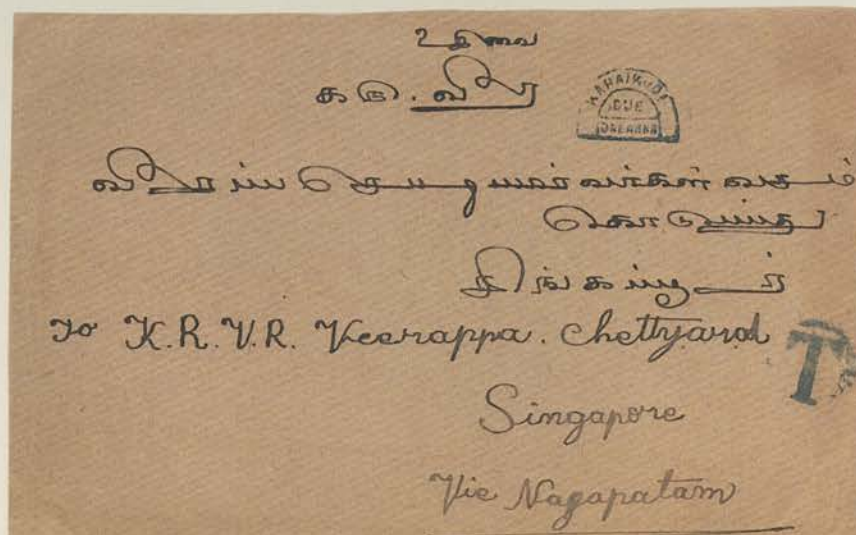 உ தேவை
கரு. வீர
KARAIKUDI
DUE
வீரப்ப செட்டியார் அவர்கள் வசம்
கொடுப்பது
சிங்கப்பூர்
To K.R.V.R. Veerappa. Chettyarval
Singapore
Via Nagapatam
T